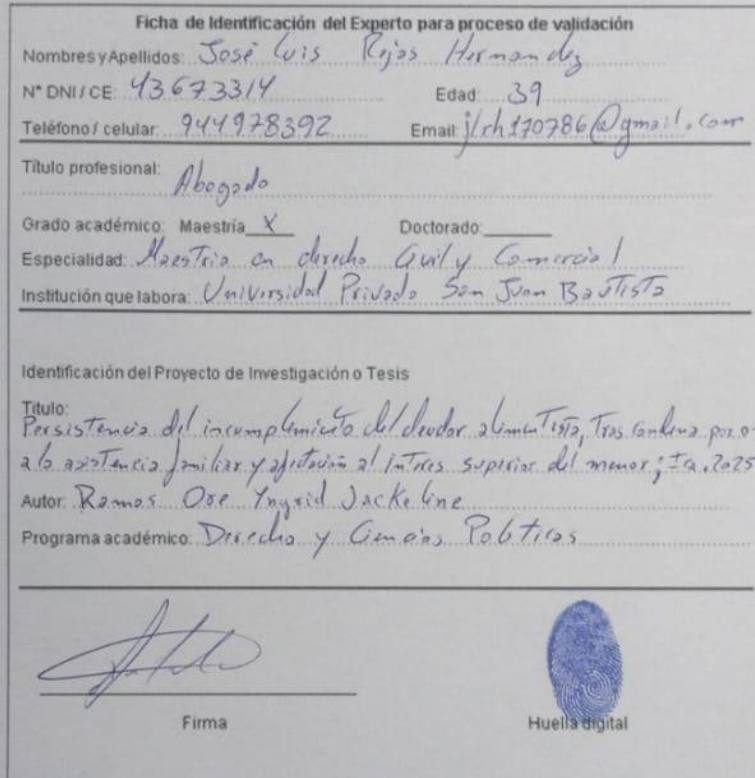 Ficha de Identificación del Experto para proceso de validación
Nombres y Apellidos: José Luis Rojas Hernandez
N° DNI / CE: 43673314 Edad: 39
Teléfono / celular: 944978392 Email: jlrh170786@gmail.com
Título profesional:
Abogado
Grado académico: Maestría X Doctorado:
Especialidad: Maestria en derecho Civil y Comercial
Institución que labora: Universidad Privada San Juan Bautista
Identificación del Proyecto de Investigación o Tesis
Título:
Persistencia del incumplimiento del deudor alimentista, tras condena por o
a la asistencia familiar y afectación al interes superior del menor; Ica, 2025
Autor: Ramos Ore Yngrid Jackeline
Programa académico: Derecho y Ciencias Politicas
Firma Huella digital